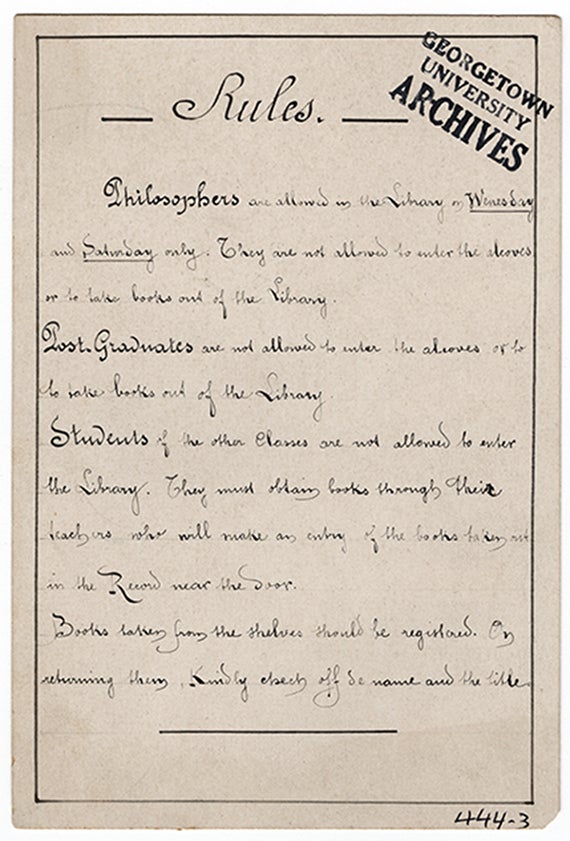 Rules.
GEORGETOWN
UNIVERSITY
ARCHIVES
Philosophers are allowed in the Library on Wenesday
and Saturday only. They are not allowed to enter the alcoves
or to take books out of the Library.
Post-Graduates are not allowed to enter the alcoves or to
to take books out of the Library.
Students of the other Classes are not allowed to enter
the Library. They must obtain books through their
teachers who will make an entry of the books taken out
in the Record near the door.
Books taken from the shelves should be registered. On
returning them, Kindly check off de name and the title.
444-3